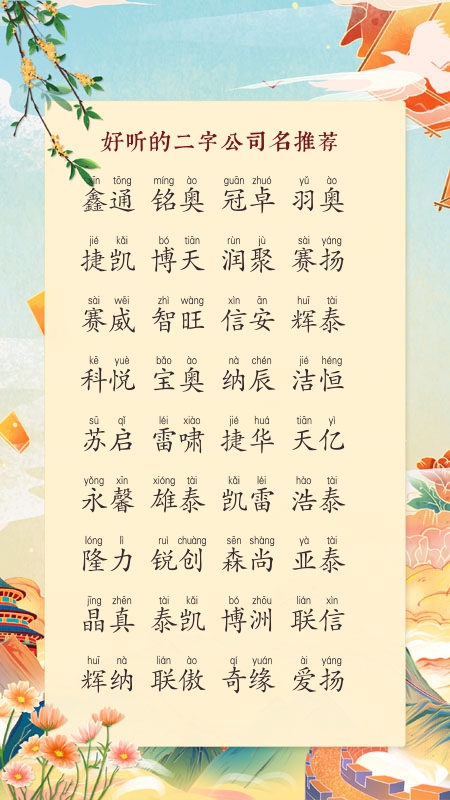 好听的二字公司名推荐
xīn tōng míng ào guān zhuó yǔ ào
鑫通 铭奥 冠卓 羽奥
jié kǎi bó tiān rùn jù sài yáng
捷凯 博天 润聚 赛扬
sài wēi zhì wàng xìn ān huī tài
赛威 智旺 信安 辉泰
kē yuè bǎo ào nà chén jié héng
科悦 宝奥 纳辰 洁恒
sū qǐ léi xiào jié huá tiān yì
苏启 雷啸 捷华 天亿
yǒng xīn xióng tài kǎi léi hào tài
永馨 雄泰 凯雷 浩泰
lóng lì ruì chuàng sēn shàng yà tài
隆力 锐创 森尚 亚泰
jīng zhēn tài kǎi bó zhōu lián xìn
晶真 泰凯 博洲 联信
huī nà lián ào qí yuán ài yáng
辉纳 联傲 奇缘 爱扬